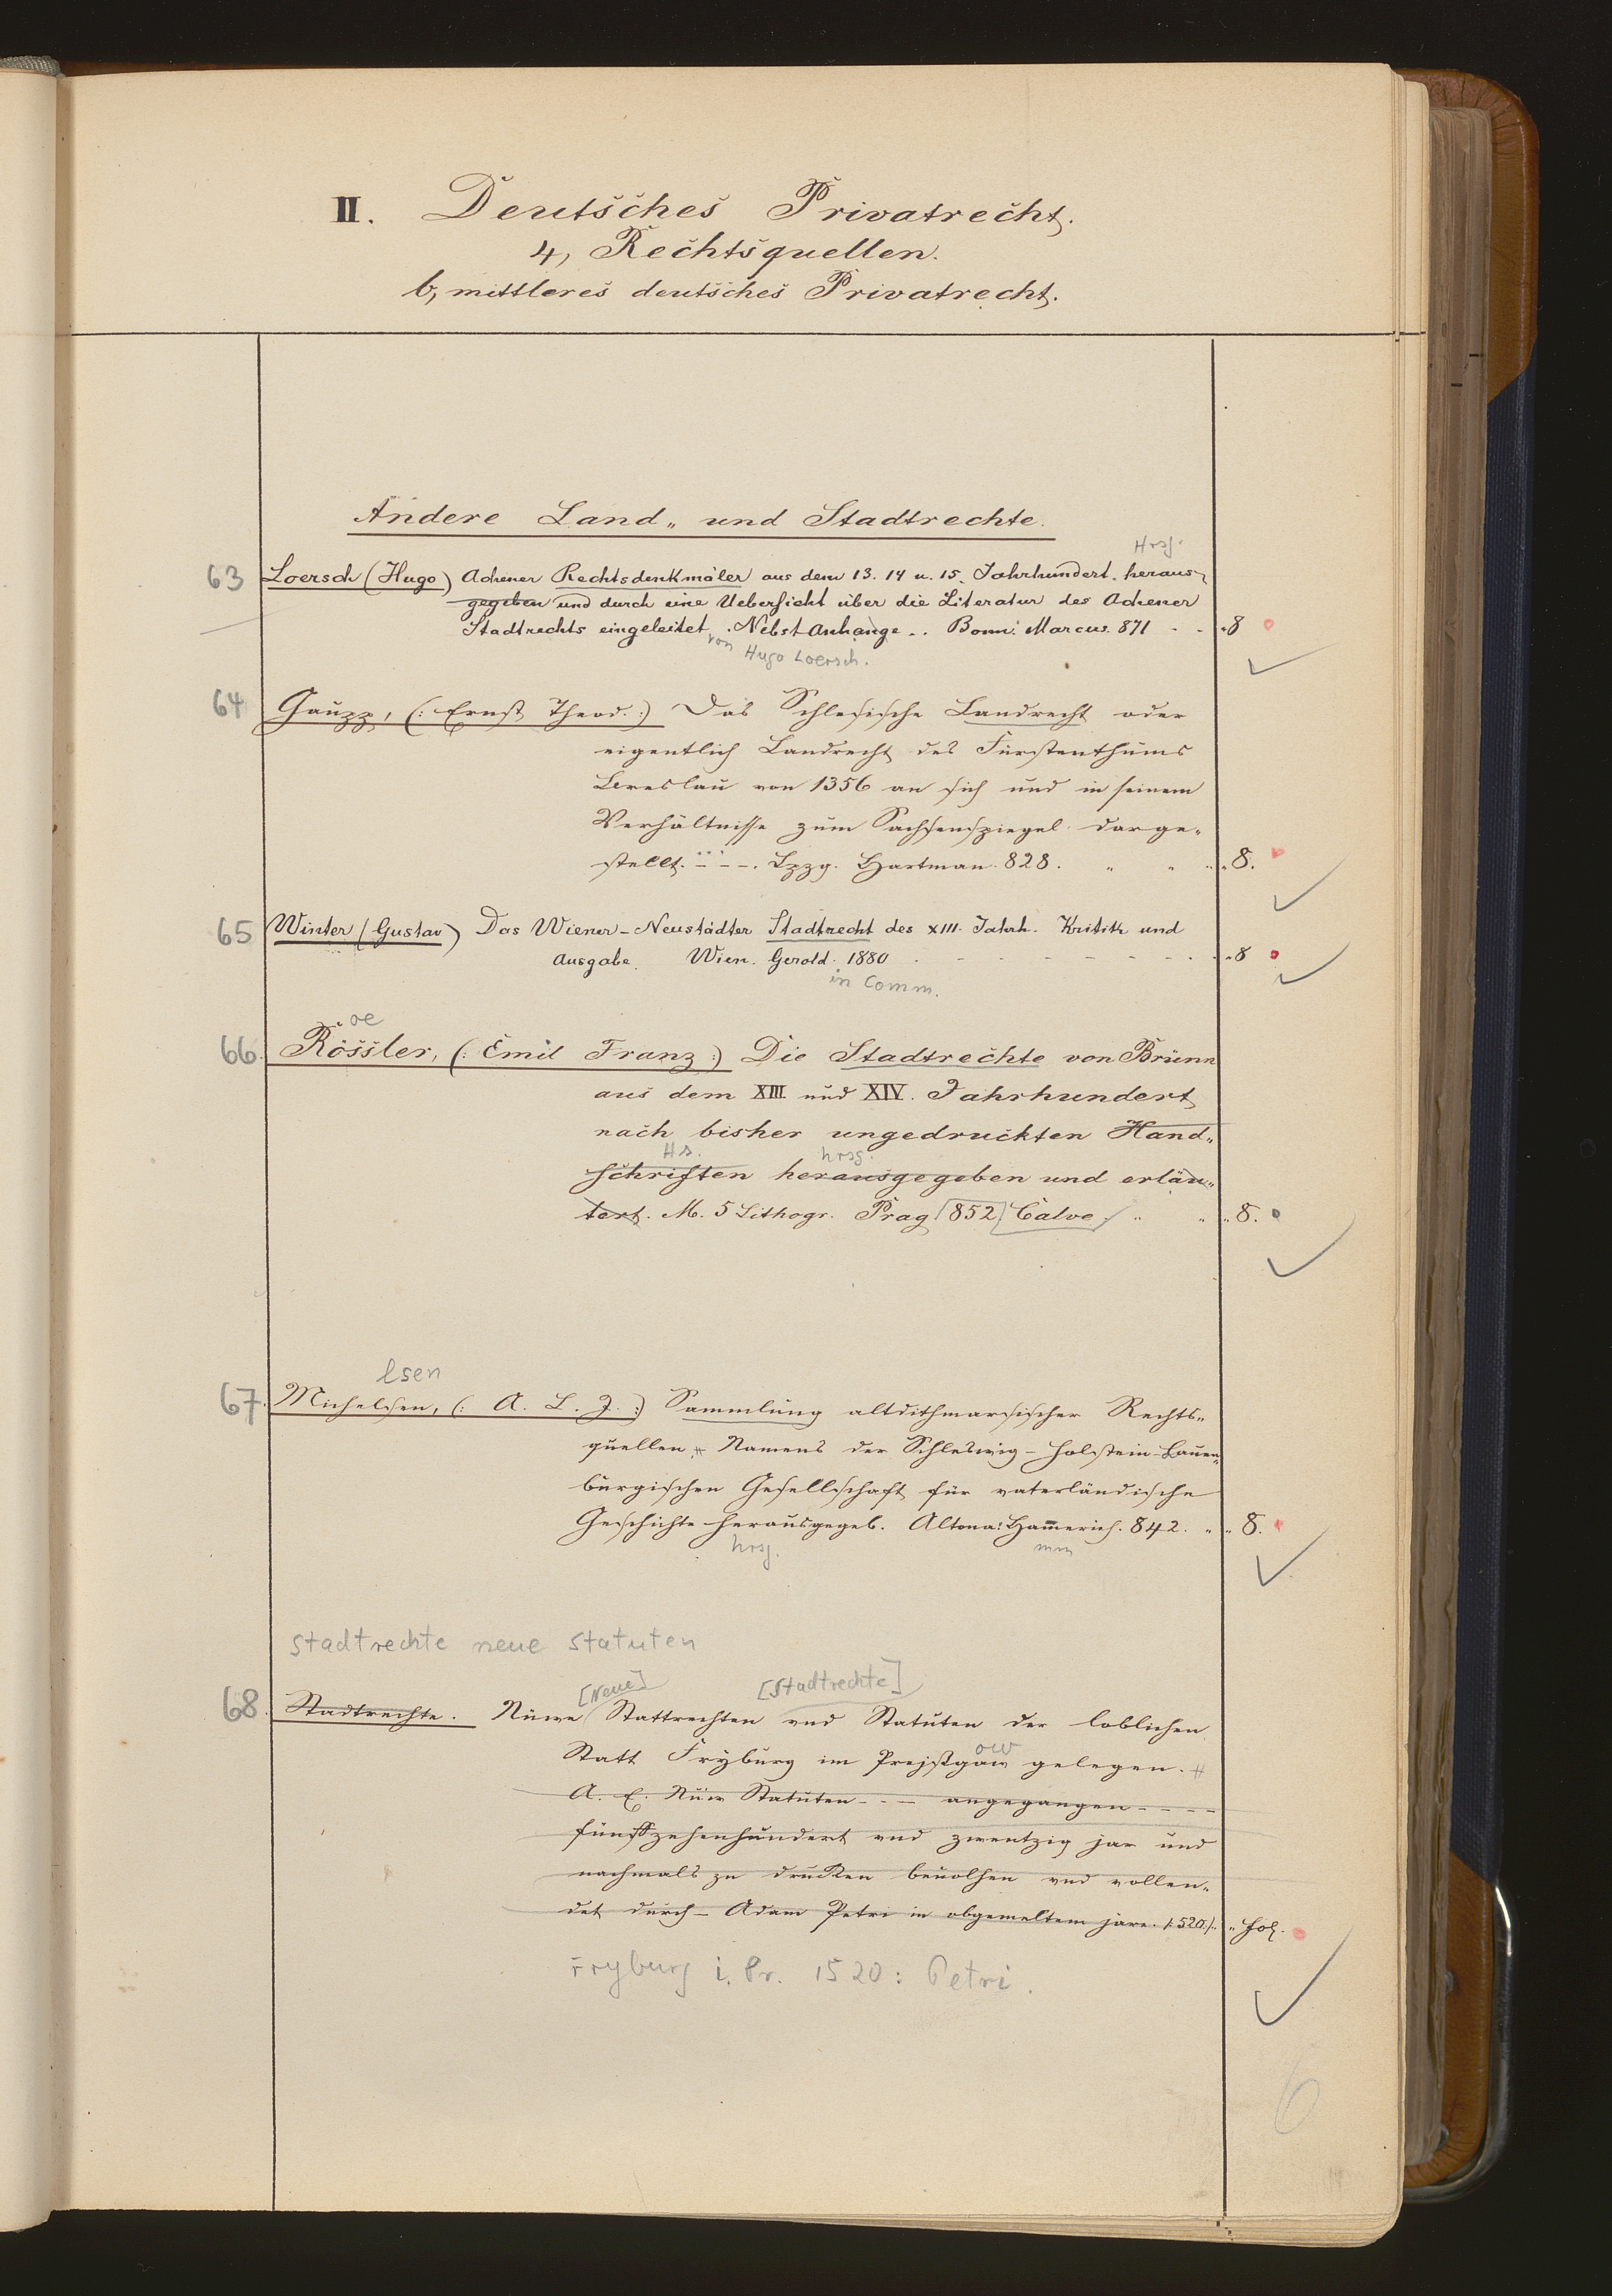 II. Deutsches Privatrecht.
4, Rechtsquellen.
b, mittleres deutsches Privatrecht.
Andere Land„ und Stadtrechte.
Hrsg.
63 Loersch (Hugo) Achener Rechtsdenkmäler aus dem 13. 14 u. 15. Jahrhundert. heraus-
gegeben und durch eine Uebersicht über die Literatur des Achener
Stadtrechts eingeleitet. Nebst Anhange .. Bonn: Marcus. 871 - - „8
von Hugo Loersch.
64 Gaupp, (: Ernst Theod. :) Das Schlesische Landrecht oder
eigentlich Landrecht des Fürstenthums
Breslau von 1356 an sich und in seinem
Verhältnisse zum Sachsenspiegel darge-
stellt. - - -. Lpzg. Hartman. 828. „ „ „ 8.
65 Winter (Gustav) Das Wiener-Neustädter Stadtrecht des XIII. Jahrh. Kritik und
Ausgabe. Wien. Gerold. 1880 . - - - - - - - „8
in Comm.
oe
66. Rössler, (: Emil Franz :) Die Stadtrechte von Brünn
aus dem XIII. und XIV. Jahrhundert
nach bisher ungedruckten Hand„
Hs. hrsg.
schriften herausgegeben und erläu„
tert. M. 5 Lithogr. Prag 852 Calve. „ „ „ 8.
lsen
67. Michelsen, (: A. L. J. :) Sammlung altdithmarsischer Rechts„
quellen. Namens der Schleswig-Holstein-Lauen„
burgischen Gesellschaft für vaterländische
Geschichte herausgegeb. Altona: Ham̄erich. 842. „ „ 8.
hrsg. mm
Stadtrechte neue Statuten
[Neue] [Stadtrechte]
68. Stadtrechte. Nüwe Stattrechten vnd Statuten der loblichen
ow
Statt Fryburg im Prejßgau gelegen.
A. E. Nüw Statuten - - - angegangen - - - -
fünffzehenhundert vnd zwentzig jar und
nachmals zu drucken beuolhen vnd vollen-
det durch - Adam Petri in obgemeltem jare. /:1520:/. „ Fol.
Fryburg i. Pr. 1520: Petri.
6